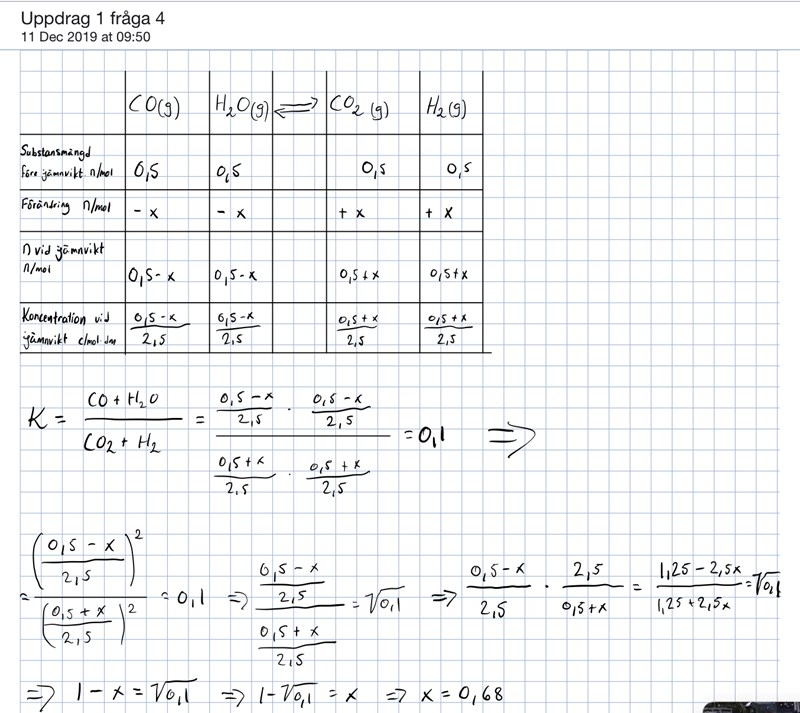 Uppdrag 1 fråga 4
11 Dec 2019 at 09:50
CO(g) H₂O(g) ⇌ CO₂(g) H₂(g)
Substansmängd
före jämnvikt n/mol 0,5 0,5 0,5 0,5
Förändring n/mol - x - x + x + x
n vid jämnvikt
n/mol 0,5-x 0,5-x 0,5+x 0,5+x
Koncentration vid
jämnvikt c/mol·dm (0,5-x)/2,5 (0,5-x)/2,5 (0,5+x)/2,5 (0,5+x)/2,5
K = (CO + H₂O)/(CO₂ + H₂) = ((0,5-x)/2,5 · (0,5-x)/2,5)/((0,5+x)/2,5 · (0,5+x)/2,5) = 0,1 ⇒
= ((0,5-x)/2,5)²/((0,5+x)/2,5)² = 0,1 ⇒ ((0,5-x)/2,5)/((0,5+x)/2,5) = √0,1 ⇒ (0,5-x)/2,5 · 2,5/(0,5+x) = (1,25-2,5x)/(1,25+2,5x) = √0,1
⇒ 1-x = √0,1 ⇒ 1-√0,1 = x ⇒ x = 0,68